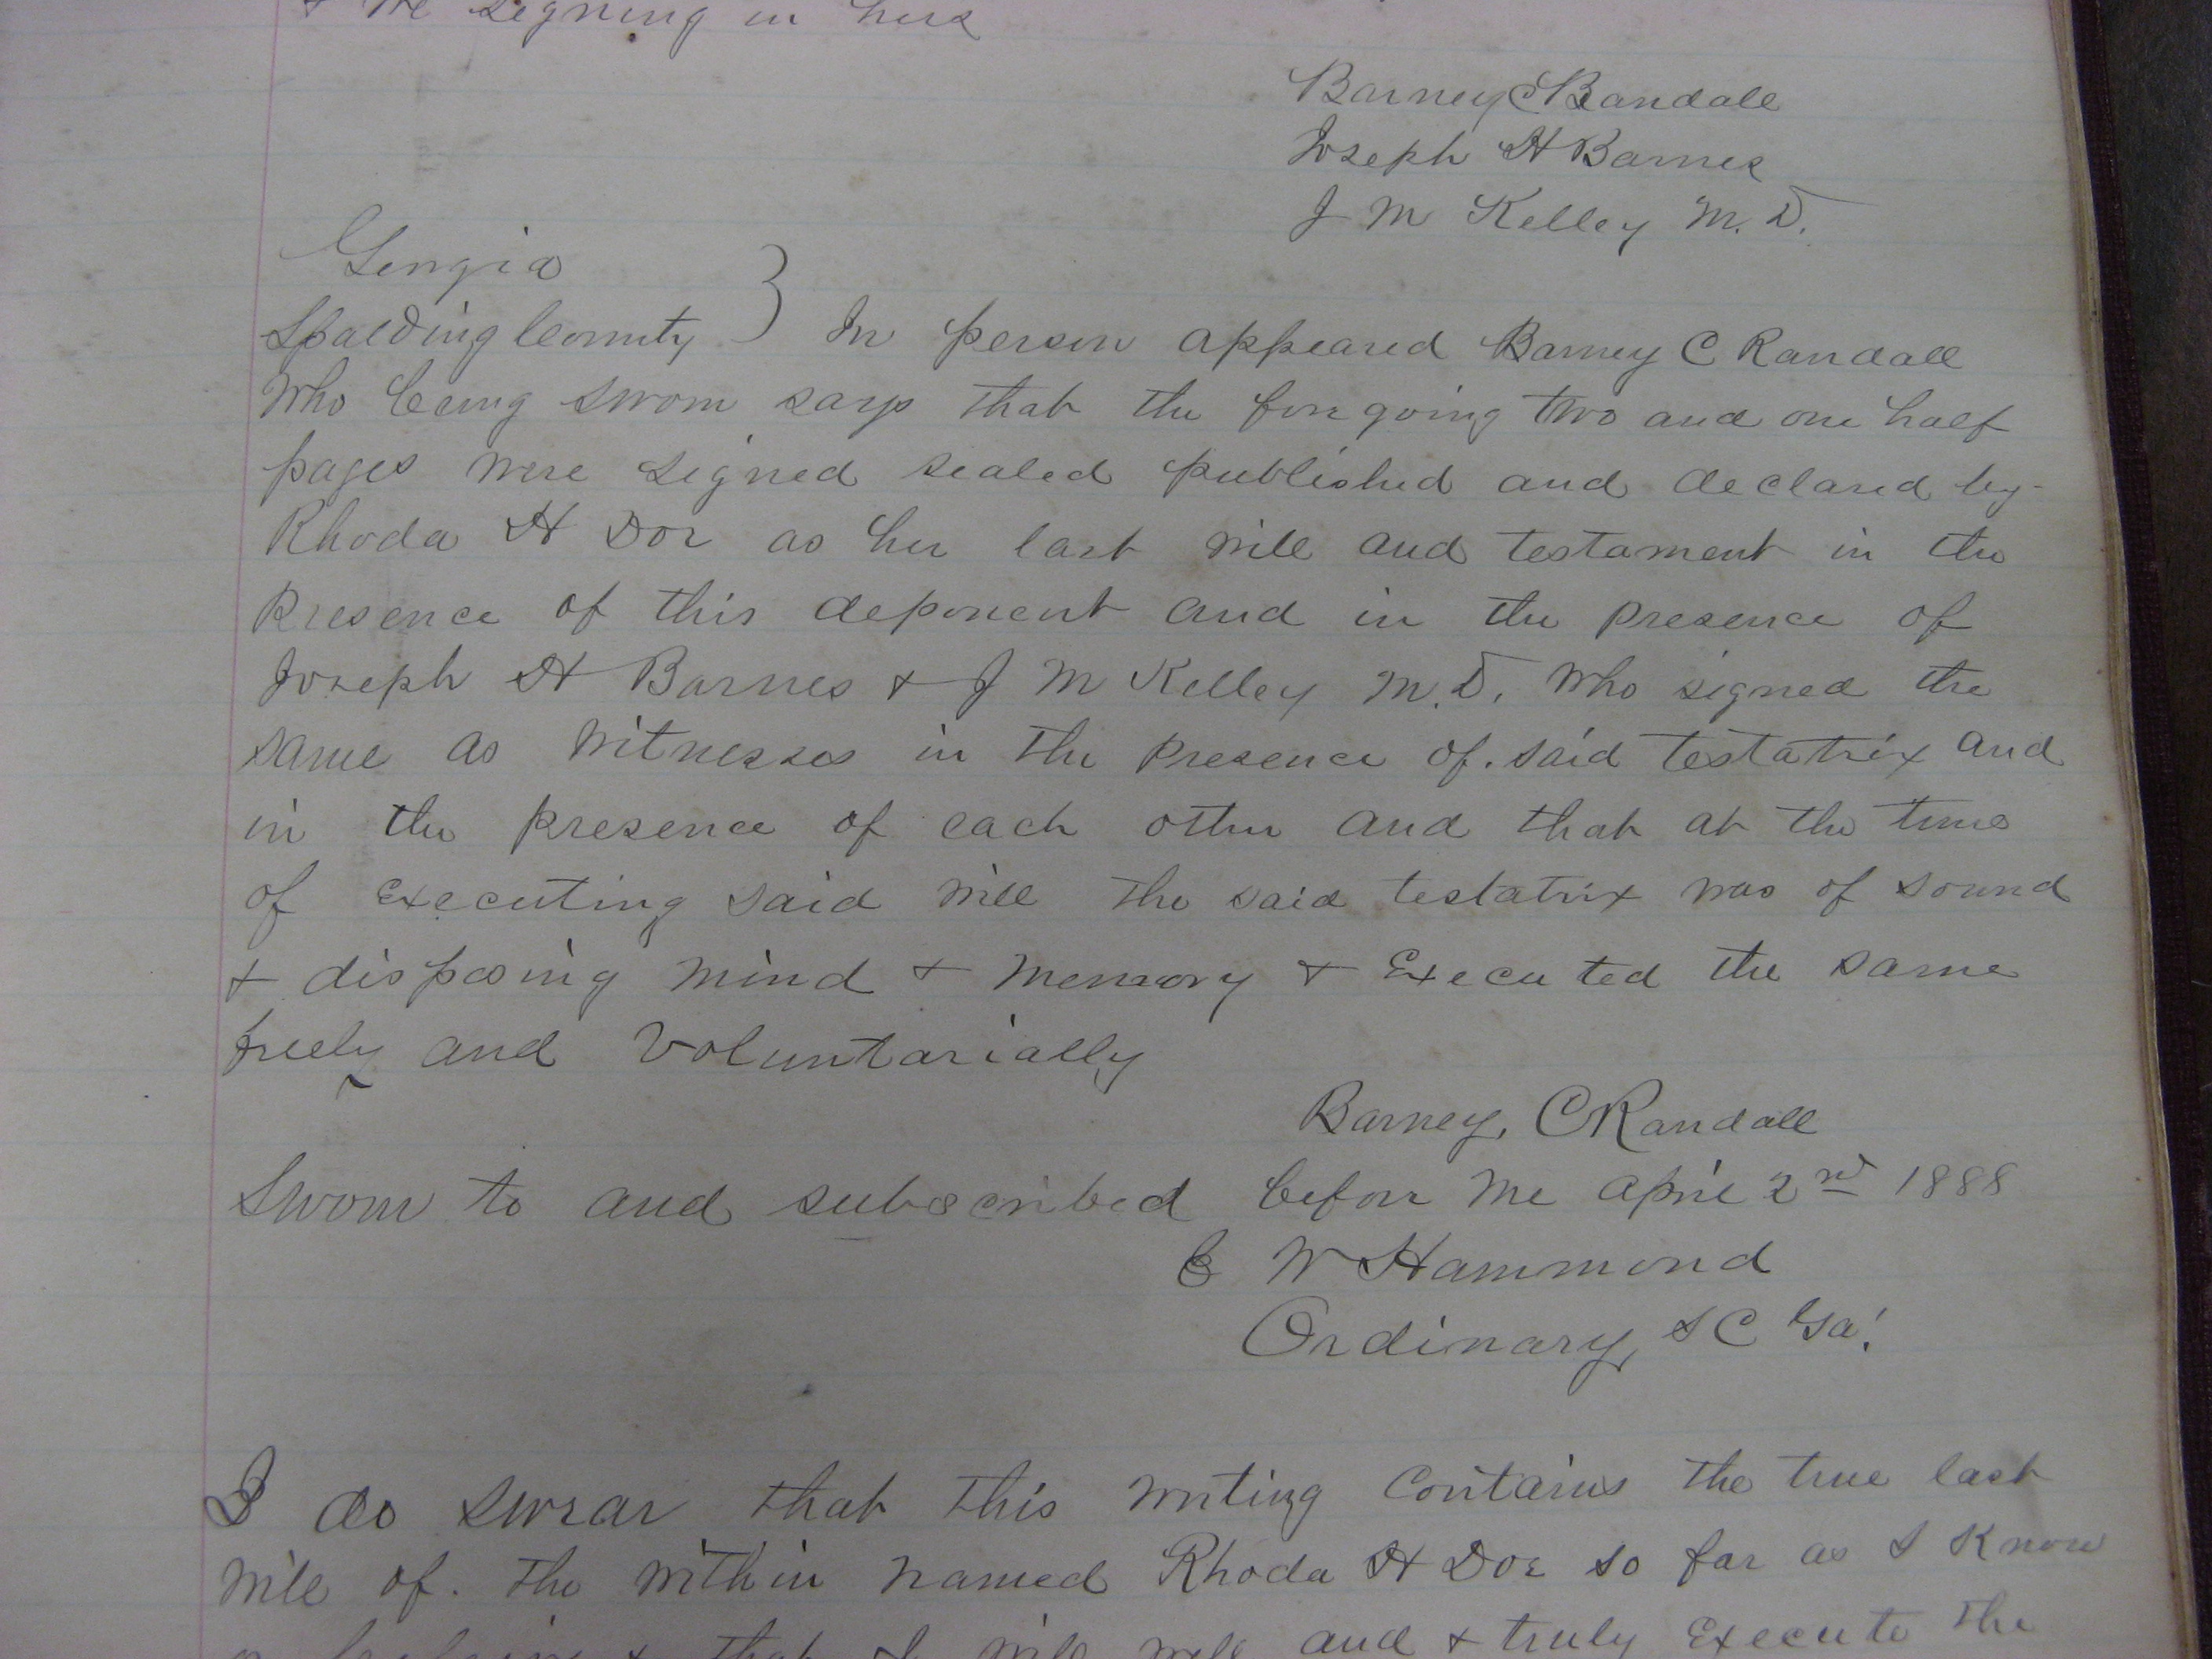 & we signing in hers
Barney C Randall
Joseph H Barnes
J M Kelley M. D.
Georgia
Spalding County } In person appeared Barney C Randall
Who being sworn says that the fore going two and one half
pages were signed sealed published and declared by
Rhoda H Doe as her last will and testament in the
presence of this deponent and in the presence of
Joseph H Barnes & J M Kelley M.D. Who signed the
same as Witnesses in the presence of. said testatrix and
in the presence of each other and that at the time
of executing said will the said testatrix was of sound
& disposing mind & memory & Executed the same
freely and Voluntarially
Barney, C Randall
Sworn to and subscribed before me April 2nd 1888
E W Hammond
Ordinary, S C Ga.
I do swear that this writing contains the true last
will of. the within named Rhoda H Doe so far as I know
or believe & that I will well and & truly Execute the